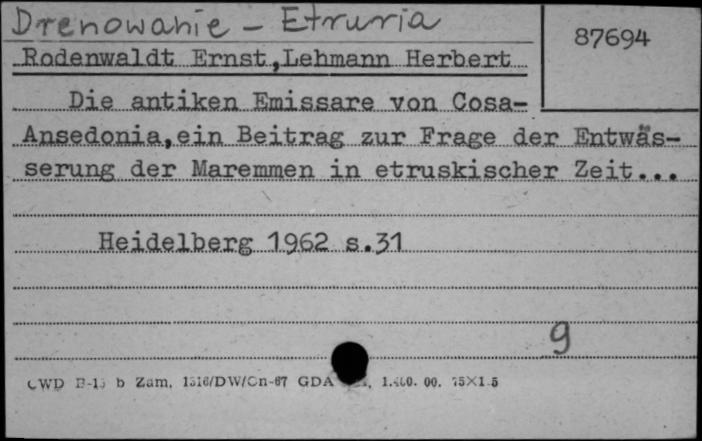 Drenowanie - Etruria
87694
Rodenwaldt Ernst,Lehmann Herbert
Die antiken Emissare von Cosa-
Ansedonia,ein Beitrag zur Frage der Entwäs-
serung der Maremmen in etruskischer Zeit...
Heidelberg 1962 s.31
9
CWD B-15 b Zam. 1316/DW/Cn-67 GDA 00.